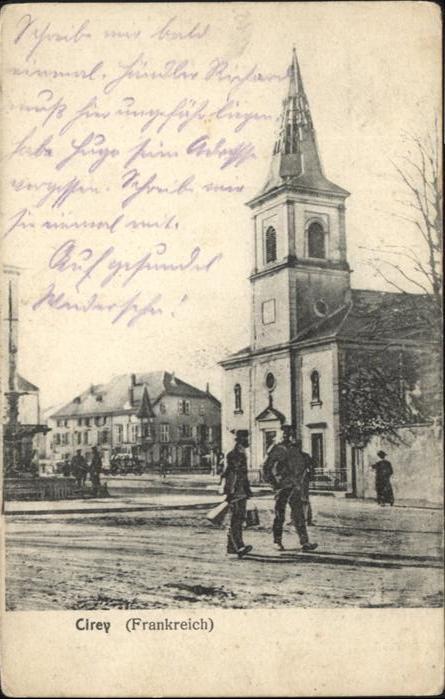 Schreibe mir bald
einmal. Händler Richard
muß hier ungefähr liegen
habe Hugo seine Adresse
vergessen. Schreibe mir
sie einmal mit.
Auf gesundes
Wiedersehn!
Cirey (Frankreich)